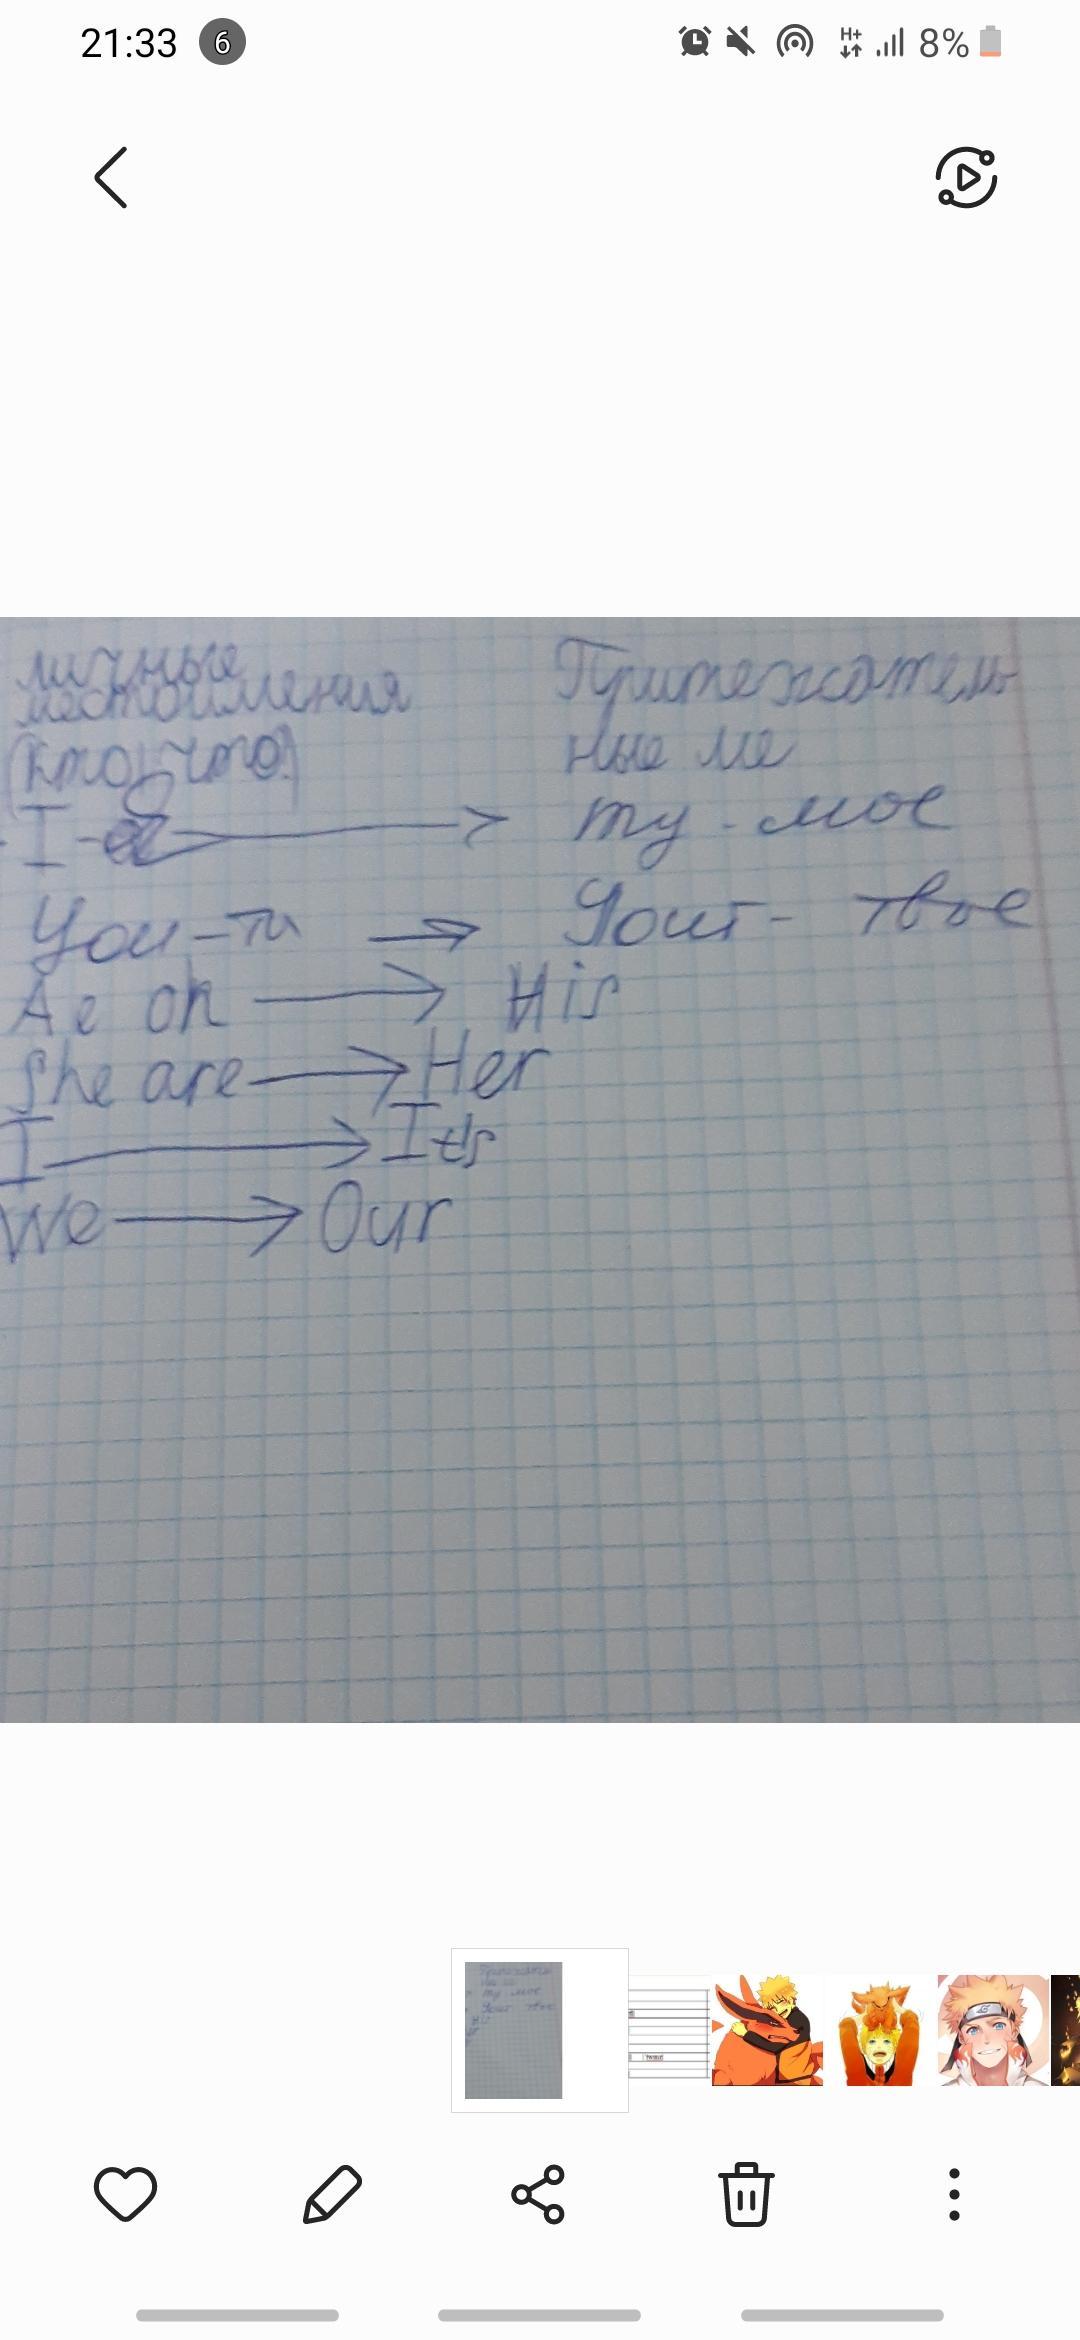 21:33 6 H+ 8%
личные Притежатель
местоимения ные ме
(кто, что)
I-я my - мое
You - ти Your - твое
Ae on His
She are Her
I Its
We Our